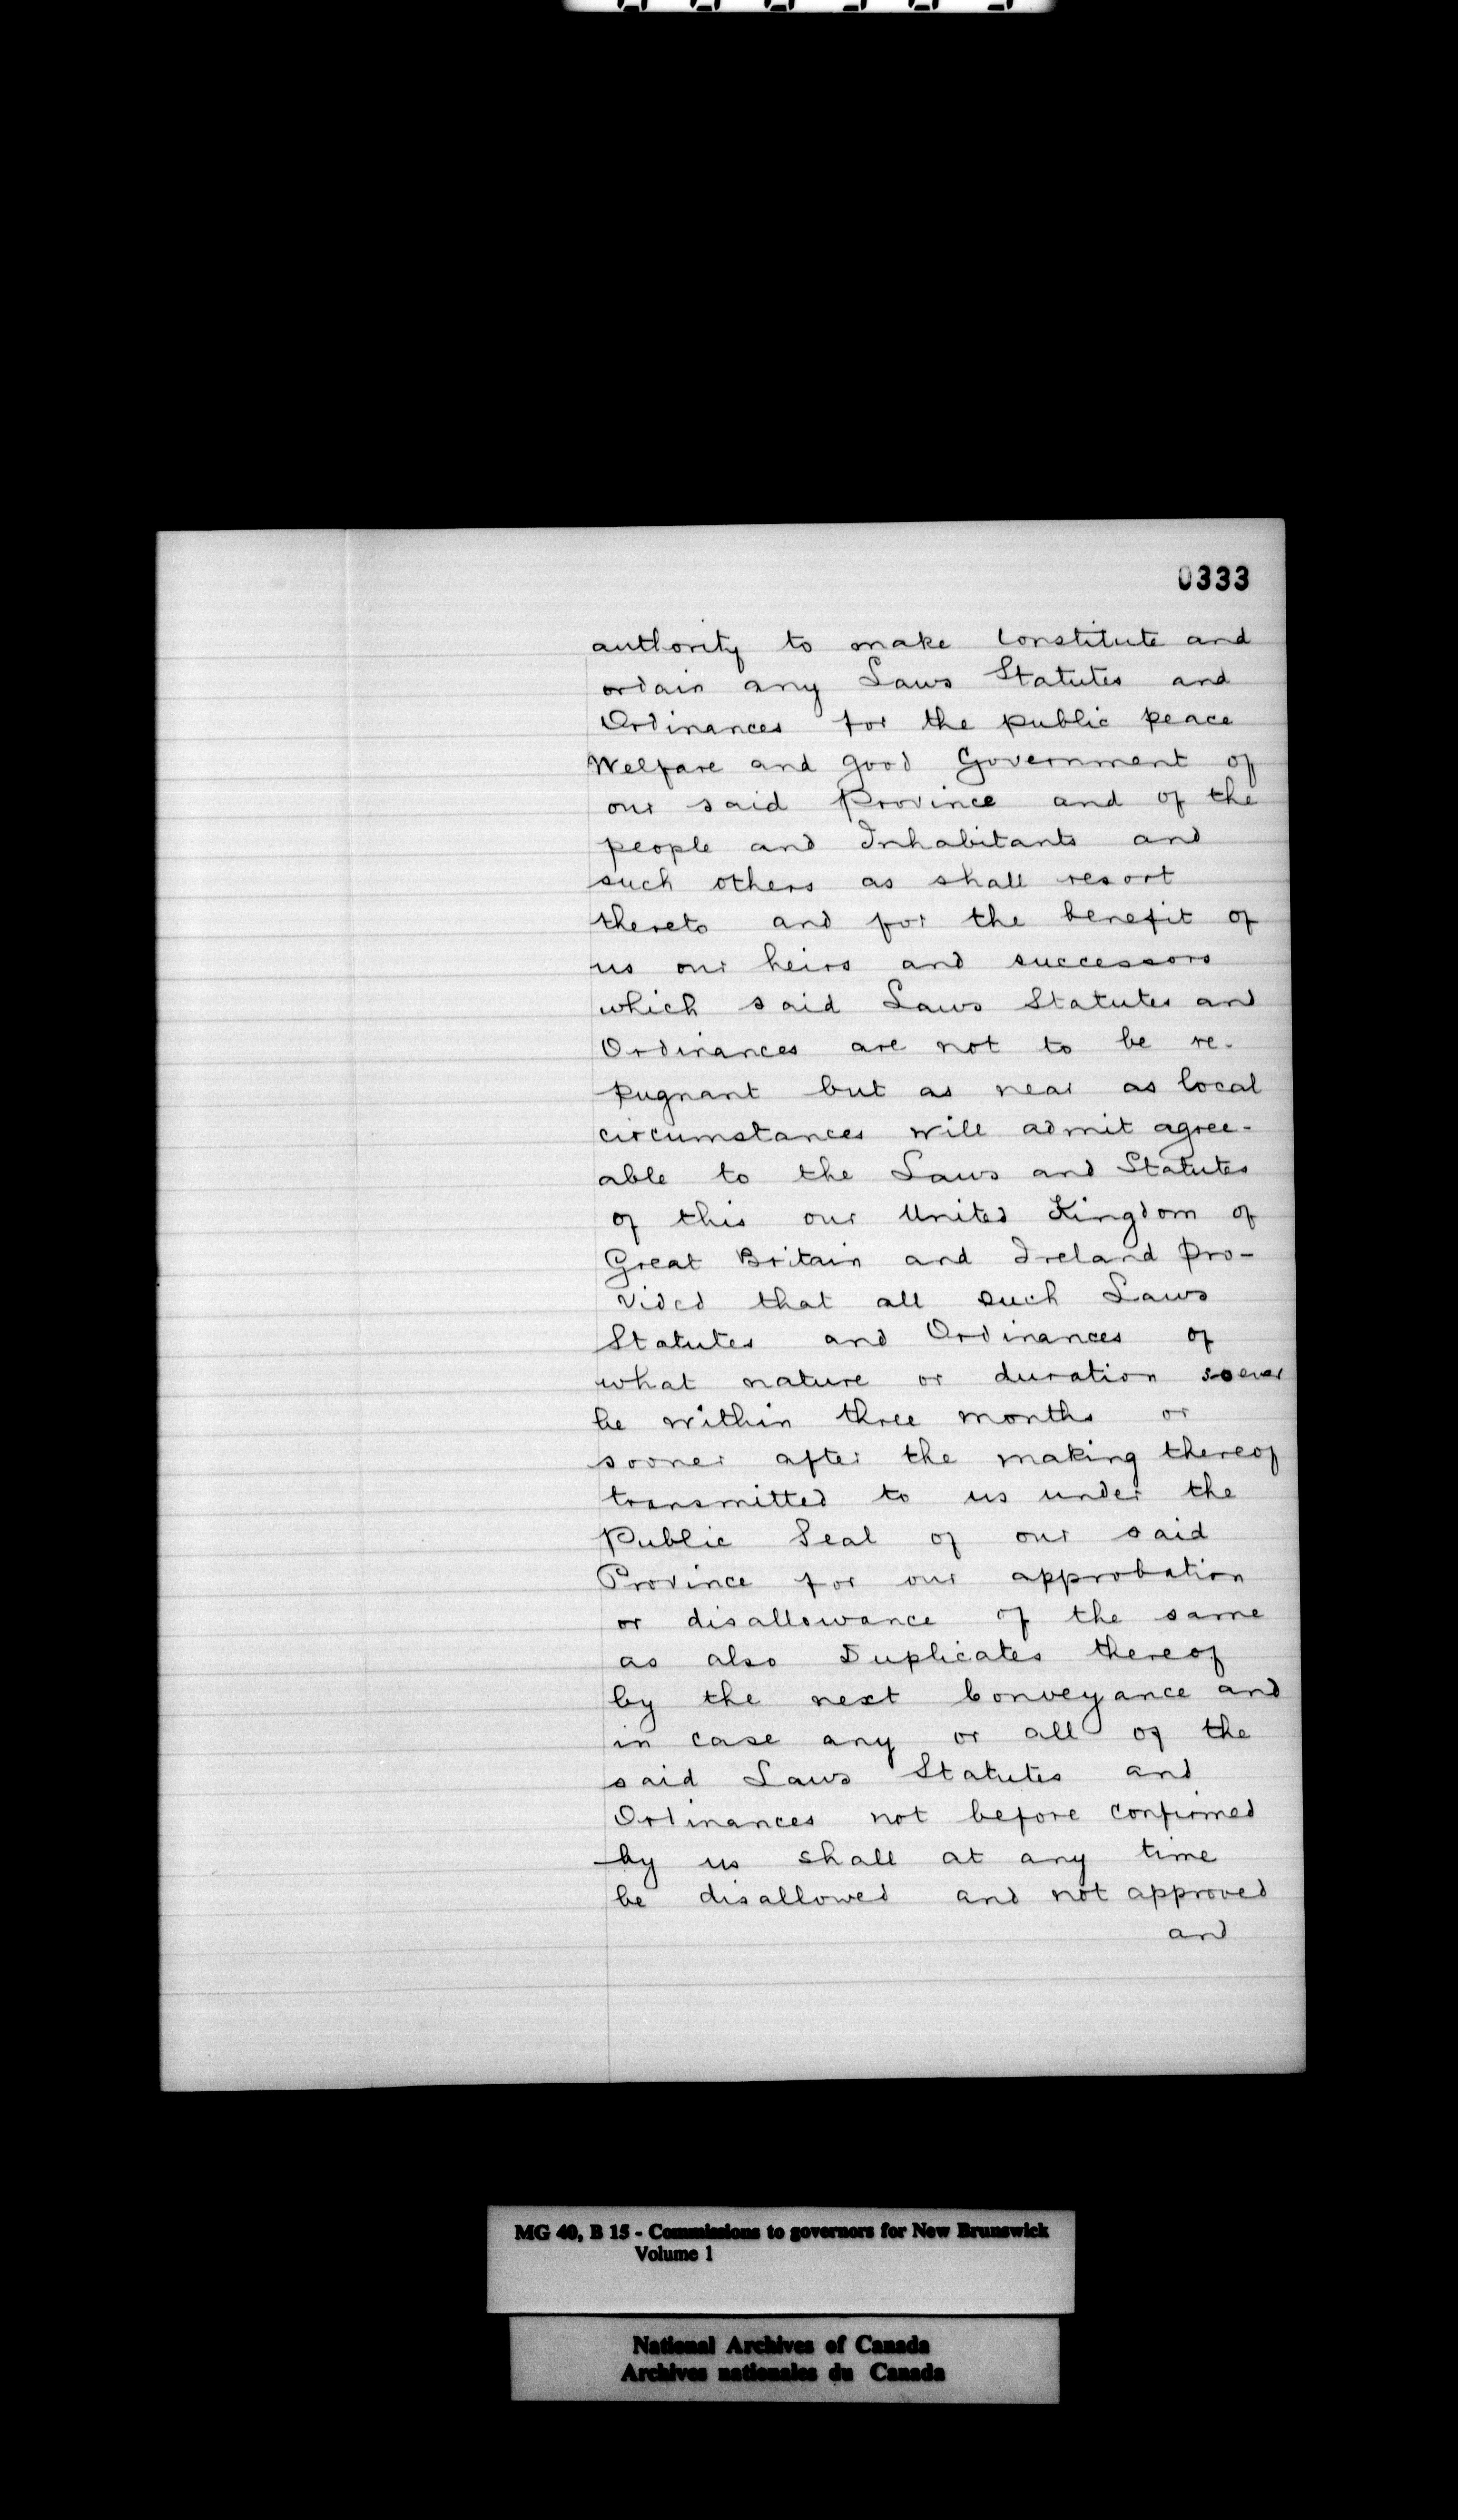 0333
authority to make Constitute and
ordain any Laws Statutes and
Ordinances for the public peace
Welfare and good Government of
our said Province and of the
people and Inhabitants and
such others as shall resort
thereto and for the benefit of
us our heirs and successors
which said Laws Statutes and
Ordinances are not to be re-
pugnant but as near as local
circumstances will admit agree-
able to the Laws and Statutes
of this our United Kingdom of
Great Britain and Ireland Pro-
vided that all such Laws
Statutes and Ordinances of
what nature or duration soever
be within three months or
sooner after the making thereof
transmitted to us under the
Public Seal of our said
Province for our approbation
or disallowance of the same
as also Duplicates thereof
by the next Conveyance and
in case any or all of the
said Laws Statutes and
Ordinances not before confirmed
by us shall at any time
be disallowed and not approved
and
MG 40, B 15 - Commissions to governors for New Brunswick
Volume 1
National Archives of Canada
Archives nationales du Canada